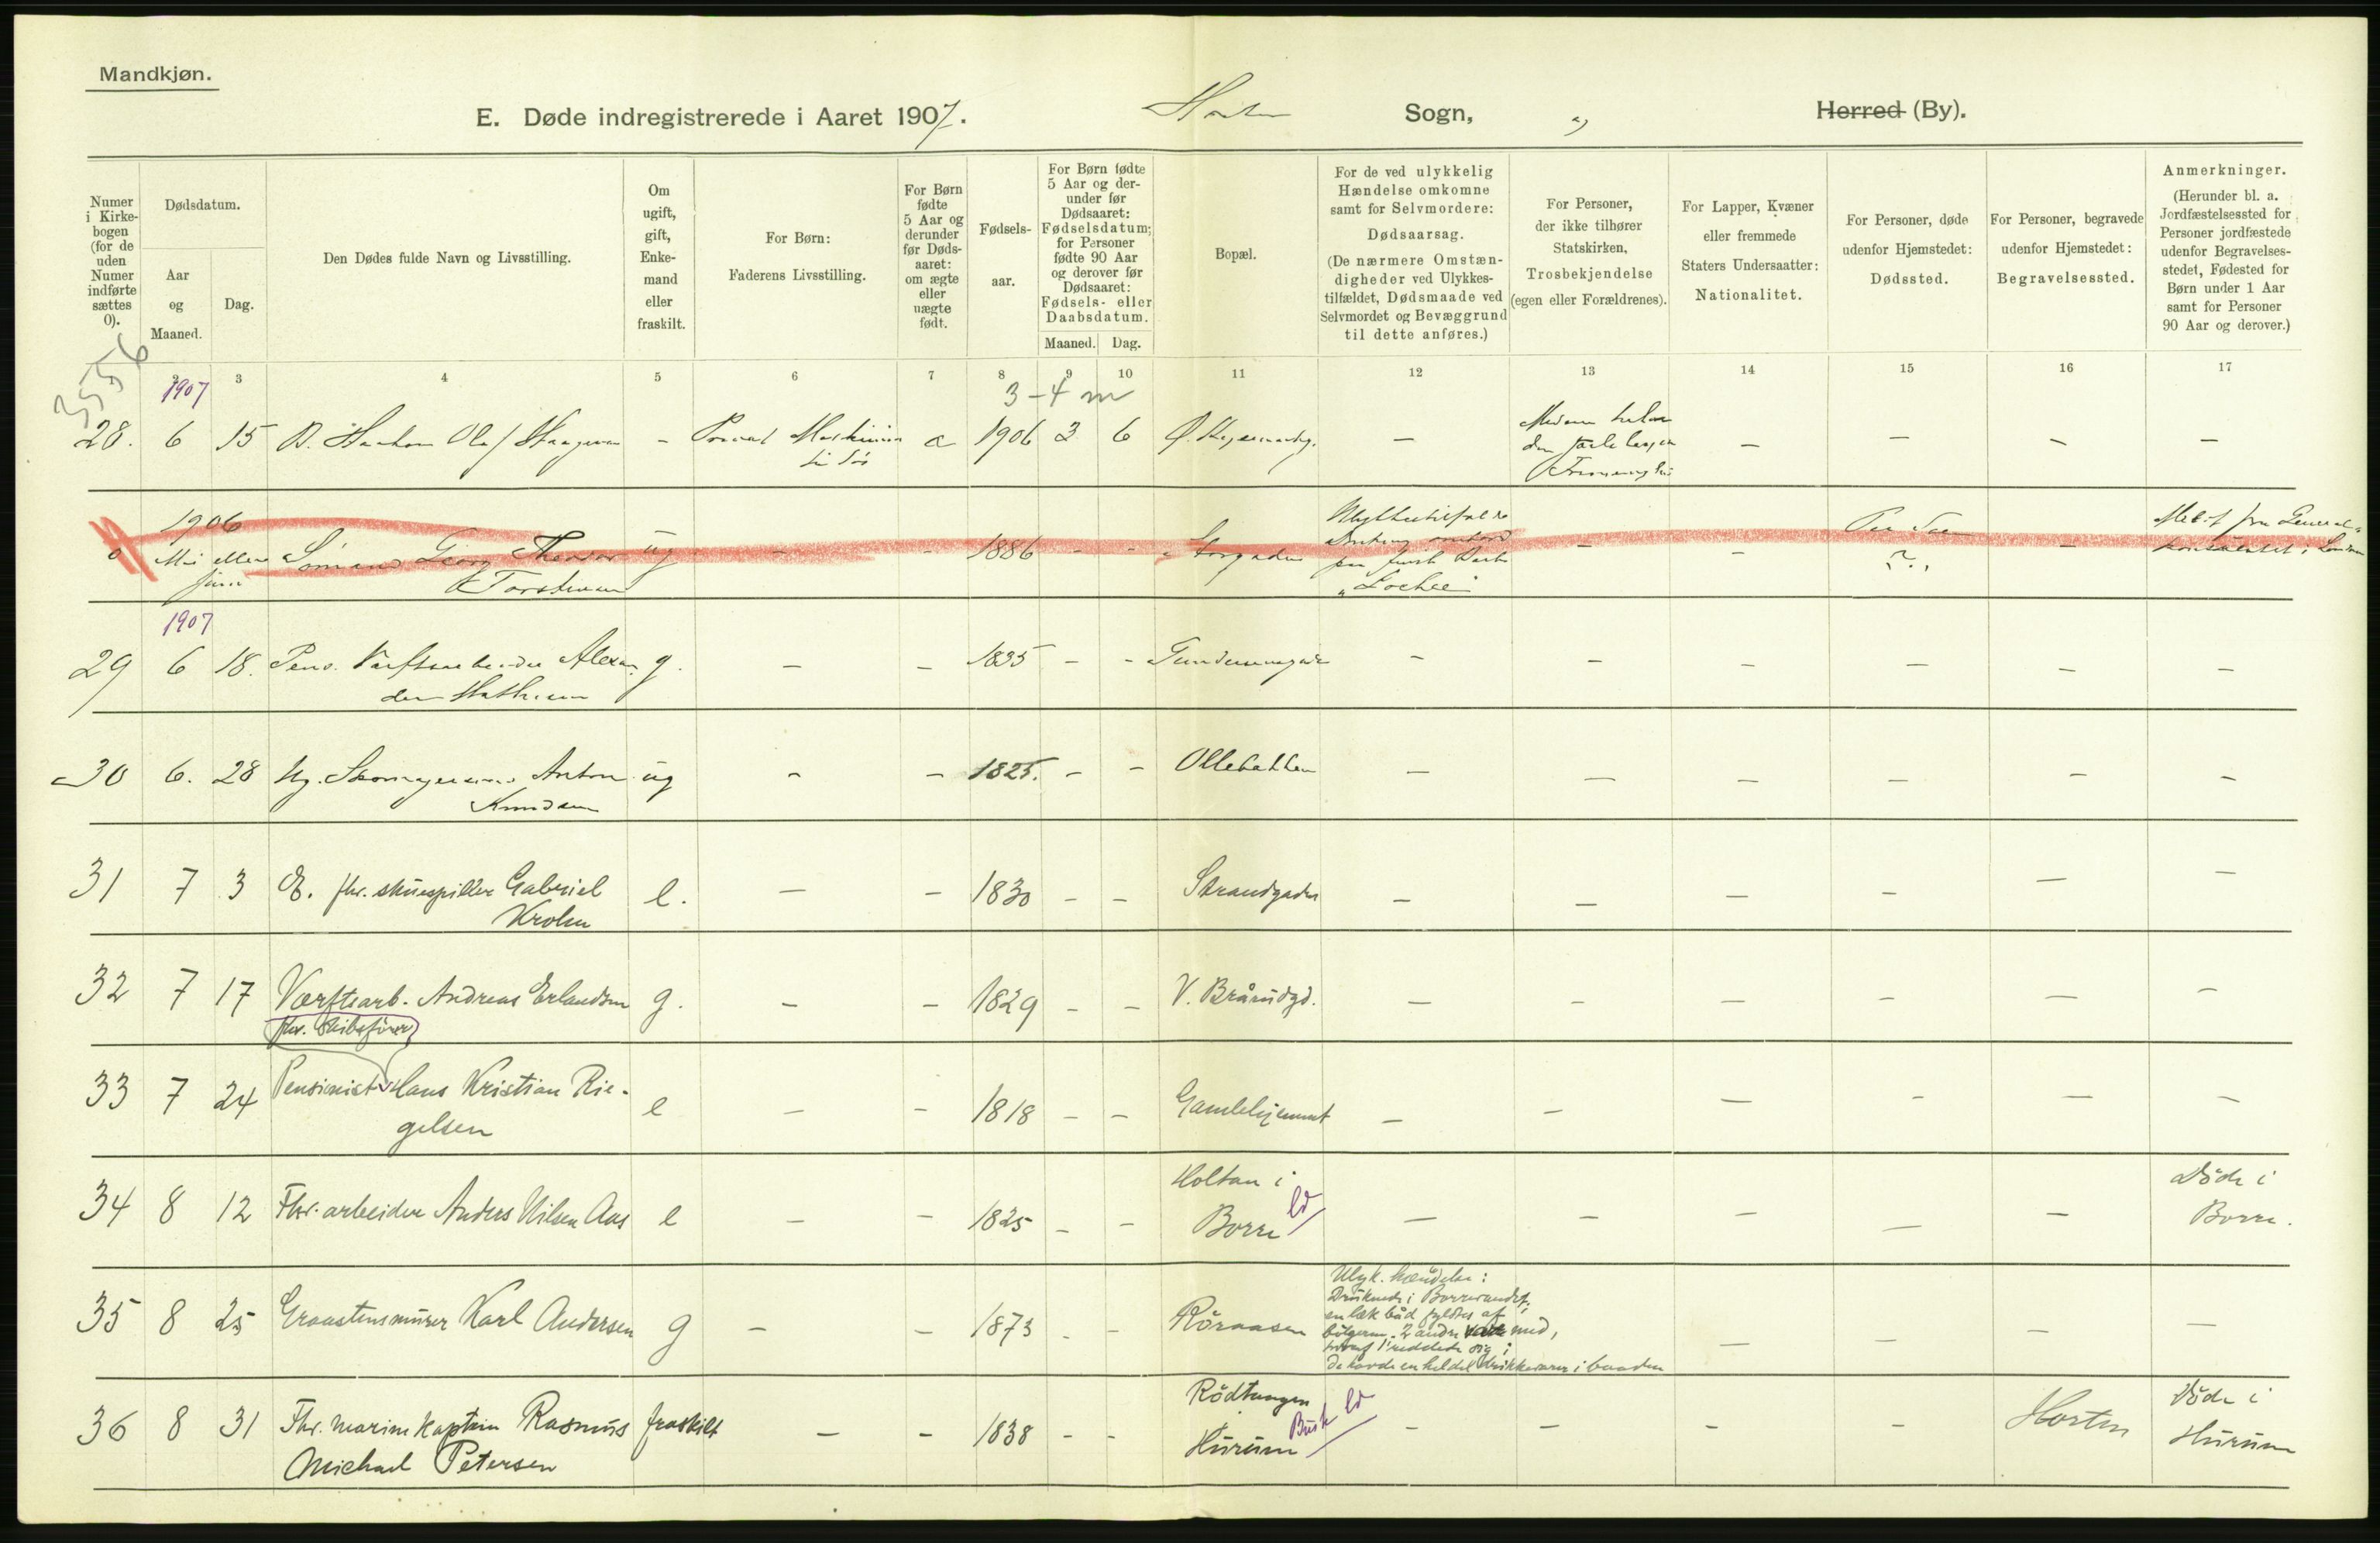 Mandkjøn.
E. Døde indregistrerede i Aaret 1907. Horten Sogn, " Herred (By).
Numer i Kirkebogen (for de uden Numer indførte sættes 0).
Dødsdatum.
Aar og Maaned.
Dag.
Den Dødes fulde Navn og Livsstilling.
Om ugift, gift, Enkemand eller fraskilt.
For Børn:
Faderens Livsstilling.
For Børn fødte 5 Aar og derunder før Dødsaaret: om ægte eller uægte født.
Fødselsaar.
For Børn fødte 5 Aar og derunder før Dødsaaret: Fødselsdatum; for Personer fødte 90 Aar og derover før Dødsaaret: Fødsels- eller Daabsdatum.
Maaned. Dag.
Bopæl.
For de ved ulykkelig Hændelse omkomne samt for Selvmordere: Dødsaarsag. (De nærmere Omstændigheder ved Ulykkestilfældet, Dødsmaade ved Selvmordet og Bevæggrund til dette anføres.)
For Personer, der ikke tilhører Statskirken, Trosbekjendelse (egen eller Forældrenes).
For Lapper, Kvæner eller fremmede Staters Undersaatter: Nationalitet.
For Personer, døde udenfor Hjemstedet: Dødssted.
For Personer, begravede udenfor Hjemstedet: Begravelsessted.
Anmerkninger. (Herunder bl. a. Jordfæstelsessted for Personer jordfæstede udenfor Begravelsesstedet, Fødested for Børn under 1 Aar samt for Personer 90 Aar og derover.)
3 4 5 6 7 8 9 10 11 12 13 14 15 16 17
3556
1907
3-4 m
28. 6 15 B. Haakon Olaf - æ 1906 3 6 - - - - -
1906
0 Mai eller Sømand Georg Theodor ug - - 1886 - - Storgaden - - -
juni Torstensen "Lochee" ?
1907
29 6 18. Pens. Værftsarbeider Alexan- g. - - 1835 - - - - - - - -
der Mathisen
30 6. 28 Ug. Anton ug - - 1825. - - Ollebakken - - - - - -
Knudsen
31 7 3 E. fhv. skuespiller Gabriel e. - - 1830 - - Strandgaden - - - - - -
Krohn
32 7 17 Værftsarb. Andreas Erlandsen g. - - 1829 - - V. Brårudgd. - - - - - -
fhv. Skibsfører
33 7 24 Pensionist Hans Kristian Rie- e - - 1818 - - Gamlehjemmet - - - - - -
gelsen
34 8 12 Fhv. arbeider Anders Nilsen Aas e - - 1825 - - Holtan i Borre ld - - - - - Døde i Borre.
35 8 25 Graastensmurer Karl Andersen g - - 1873 - - Røraasen - - - -
Ulyk. hændelse:
Druknede i Borrevandet;
en læk båd fyldtes af
bølgerne. 2 andre var med,
hvoraf 1 reddede sig;
de havde en heldel drikkevarer i baaden
36 8 31 Fhv. marine kaptein Rasmus fraskilt - - 1838 - - Rødtangen Hurum Busk ld - - - - Horten Døde i Hurum
Michael Petersen